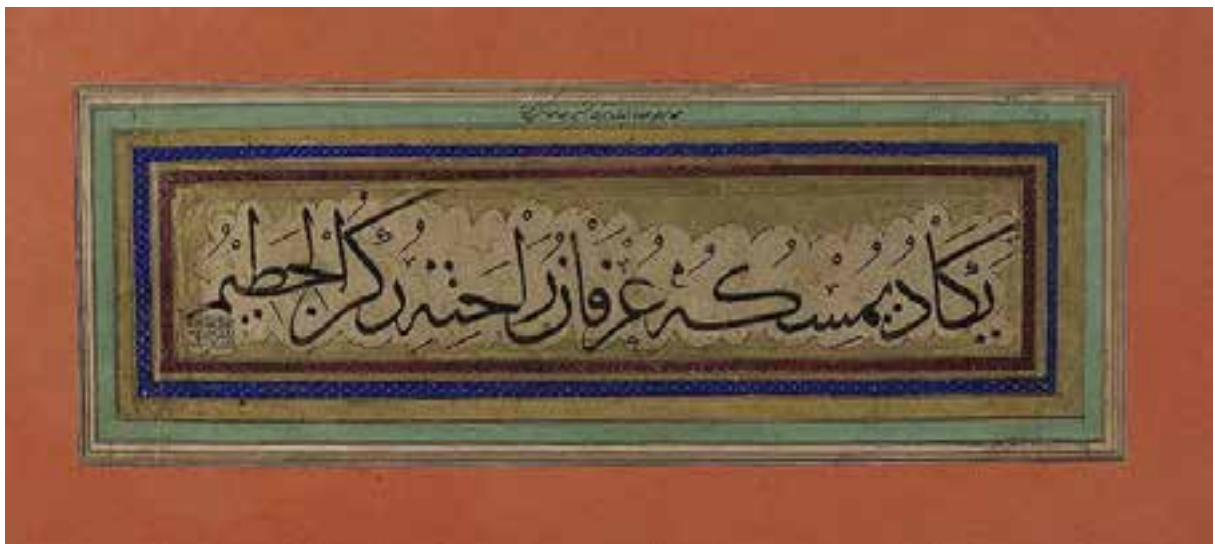 يَكَادُ يُمْسِكُهُ عِرْفَانُ رَاحَتِهِ رُكْنُ الْحَطِيْمُ